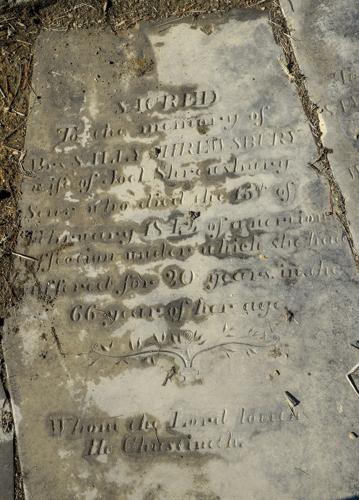 SACRED
To the memory of
Mrs SALLY SHREWSBURY
wife of Joel Shrewsbury
Senr who died the 15t of
February 184 of a
affection under which she had
suffered for 20 years in the
66 year of her age
Whom the Lord loveth
He Chasteneth